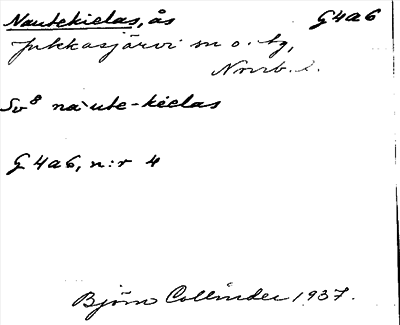 Nautekielas, ås G4a6
Jukkasjärvi sn o. tg,
Norrb. l.
Sv⁸ nàute-kielas
G 4a6, n:r 4
Björn Collinder 1937.